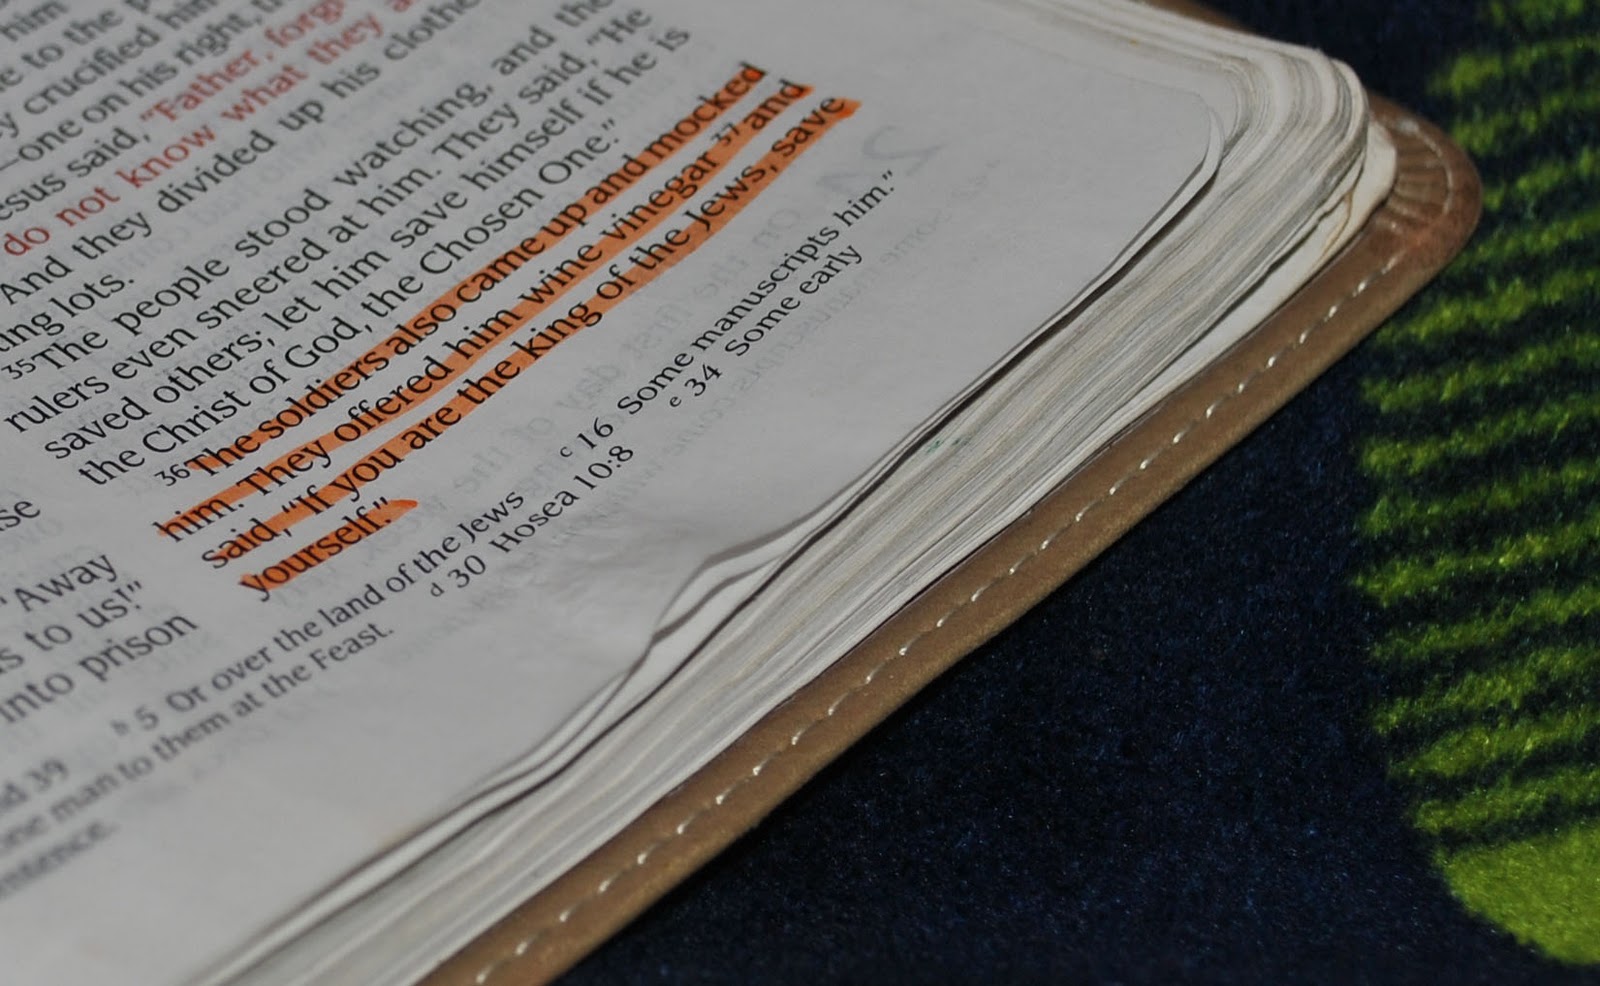 him
e to the p
y crucified him
—one on his right, th
esus said, "Father, forgi
do not know what they a
And they divided up his clothe
ting lots.
35 The people stood watching, and the
rulers even sneered at him. They said, "He
saved others; let him save himself if he is
the Christ of God, the Chosen One."
36 The soldiers also came up and mocked
him. They offered him wine vinegar 37 and
said, "If you are the king of the Jews, save
yourself."
se
"Away
s to us!"
into prison
b 5 Or over the land of the Jews c 16 Some manuscripts him."
one man to them at the Feast. d 30 Hosea 10:8 e 34 Some early
d 39
entence.